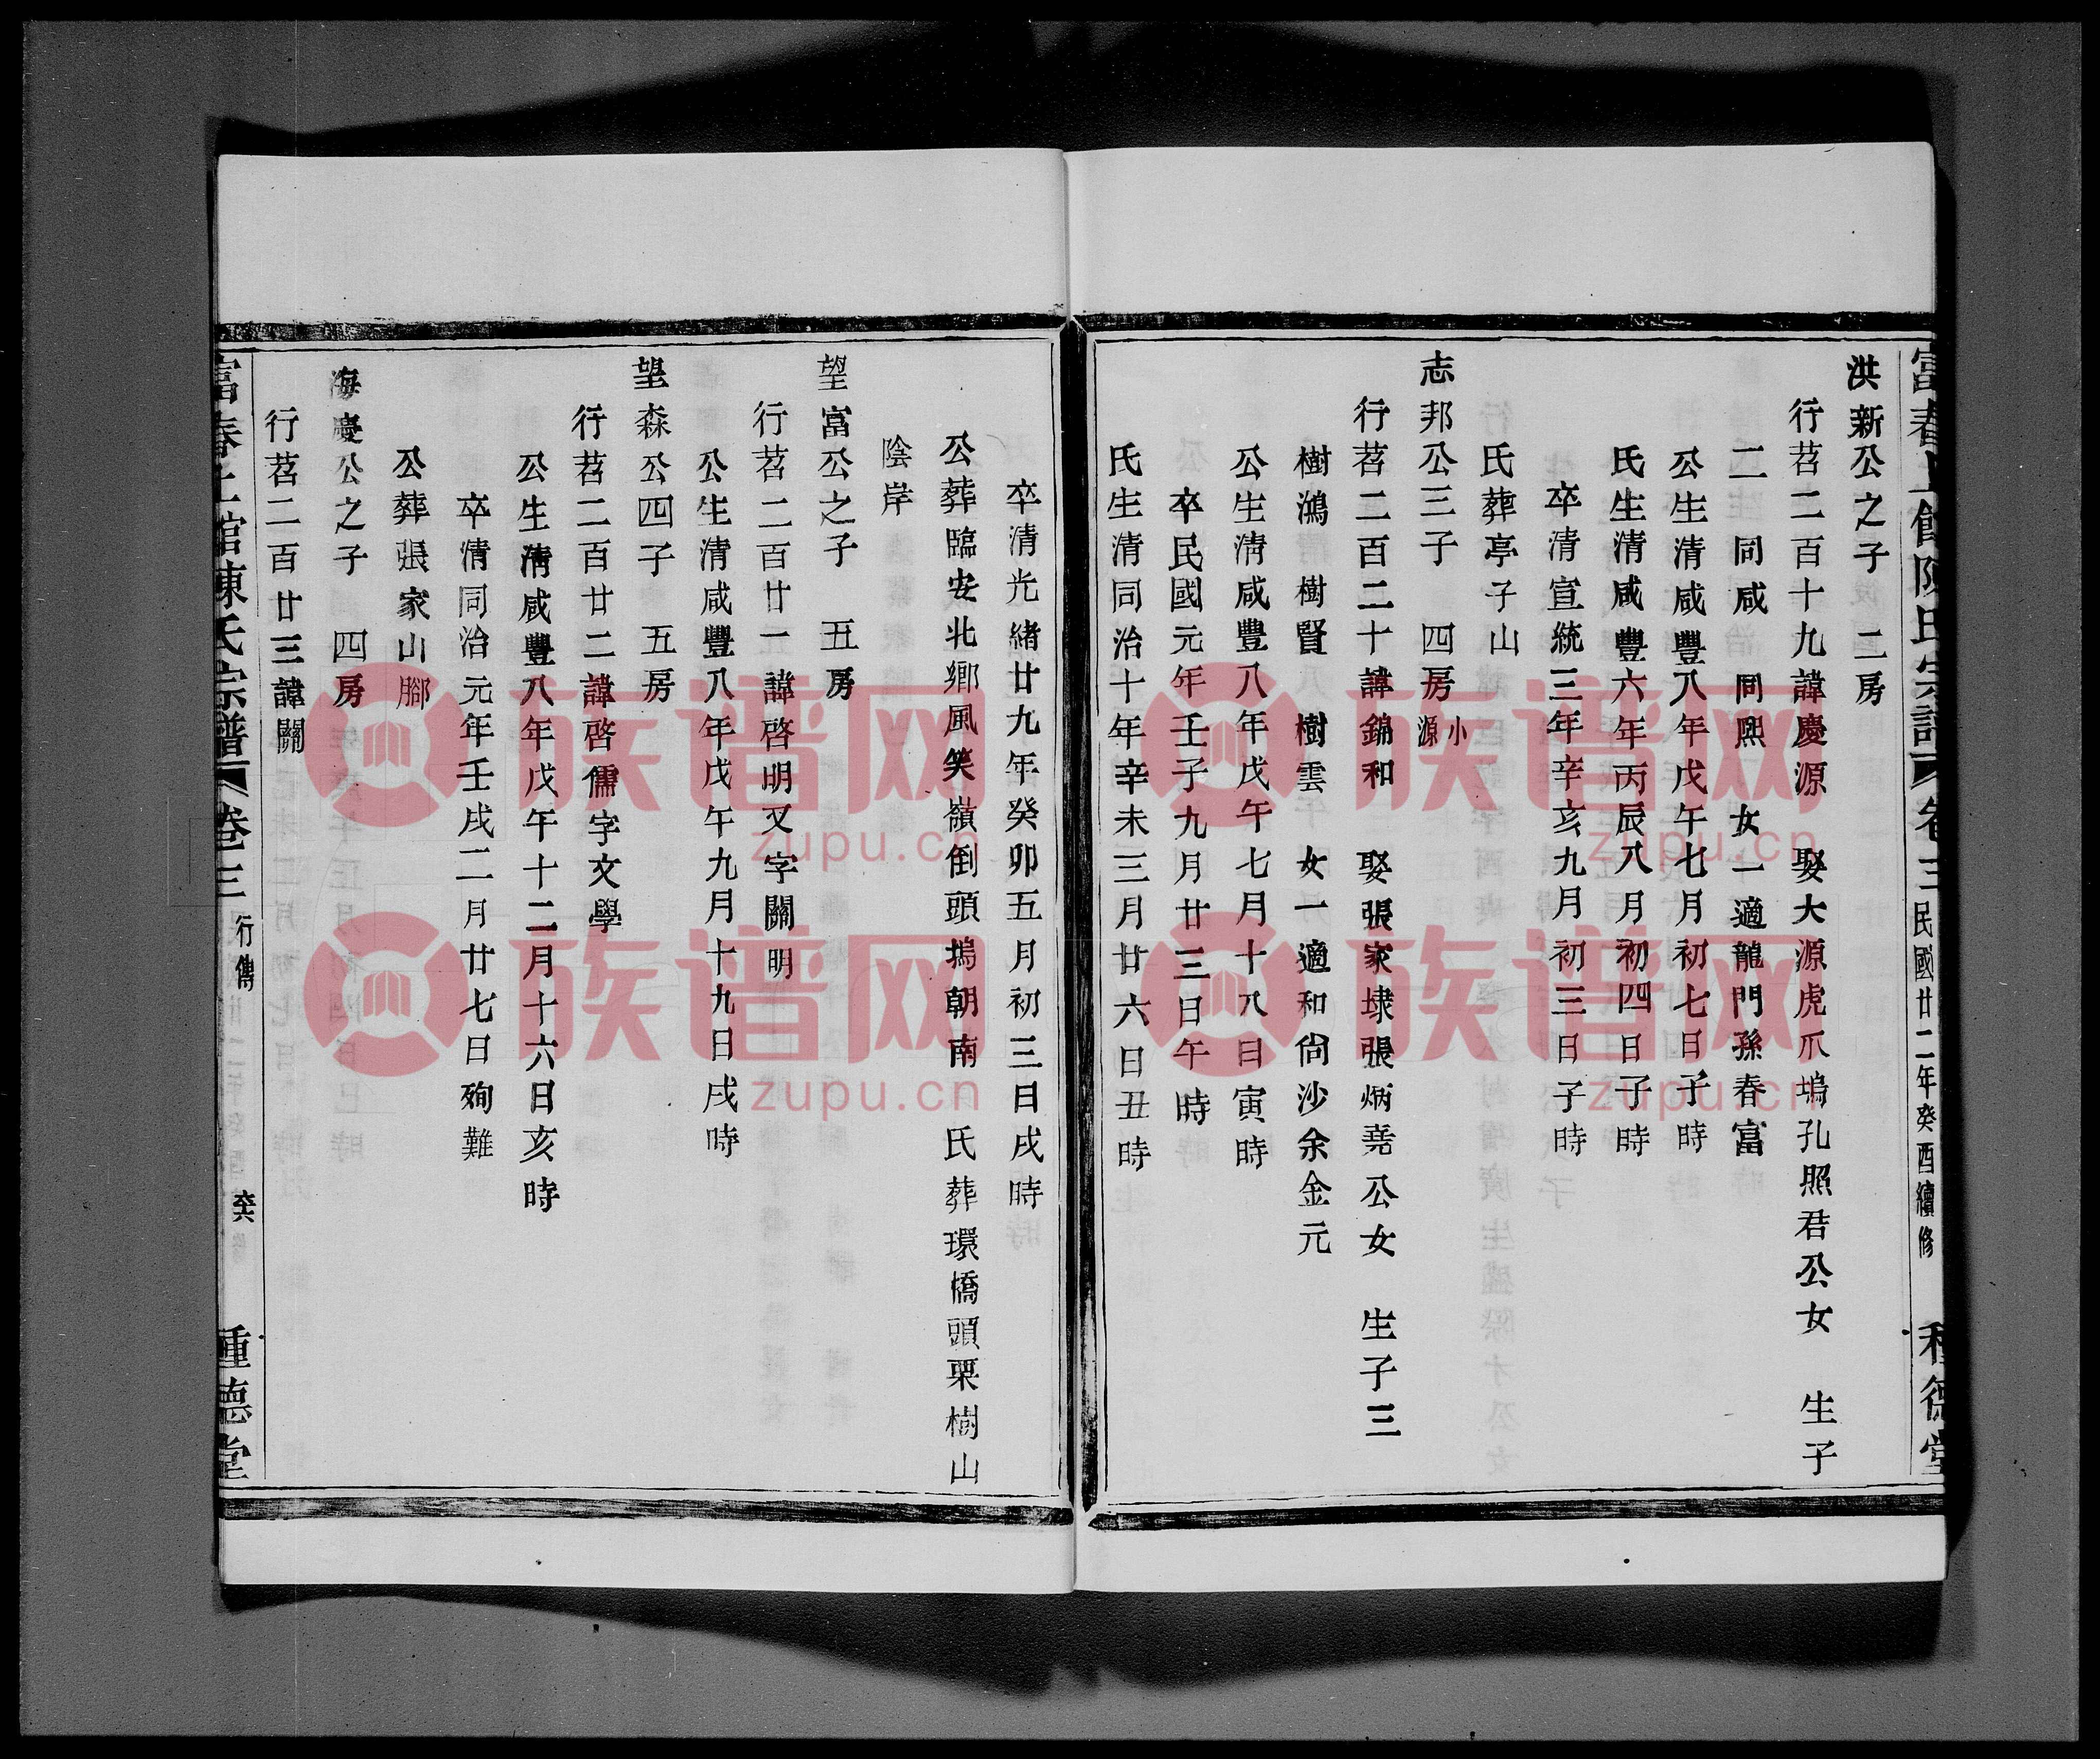 富春上館陳氏宗譜 卷三 民國廿二年癸酉續修 種德堂
洪新公之子 二房
行萏二百十九諱慶源 娶大源虎爪塢孔照君公女 生子
二 同咸 同熙 女一適龍門孫春富
公生清咸豐八年戊午七月初七日子時
氏生清咸豐六年丙辰八月初四日子時
卒清宣統三年辛亥九月初三日子時
氏葬亭子山
志邦公三子 四房小源
行萏二百二十諱錦和 娶張家埭張炳堯公女 生子三
樹鴻 樹賢 樹雲 女一適和尙沙余金元
公生清咸豐八年戊午七月十八日寅時
卒民國元年壬子九月廿三日午時
氏生清同治十年辛未三月廿六日丑時
卒清光緒廿九年癸卯五月初三日戌時
公葬臨安北鄉風笑嶺倒頭塢朝南 氏葬環橋頭栗樹山
陰岸
望富公之子 五房
行萏二百廿一諱啓明又字關明
公生清咸豐八年戊午九月十九日戌時
望森公四子 五房
行萏二百廿二諱啓儒字文學
公生清咸豐八年戊午十二月十六日亥時
卒清同治元年壬戌二月廿七日殉難
公葬張家山腳
海慶公之子 四房
行萏二百廿三諱關
富春上館陳氏宗譜 卷三 行傳 種德堂
族谱网
zupu.cn
族谱网
zupu.cn
族谱网
zupu.cn
族谱网
zupu.cn